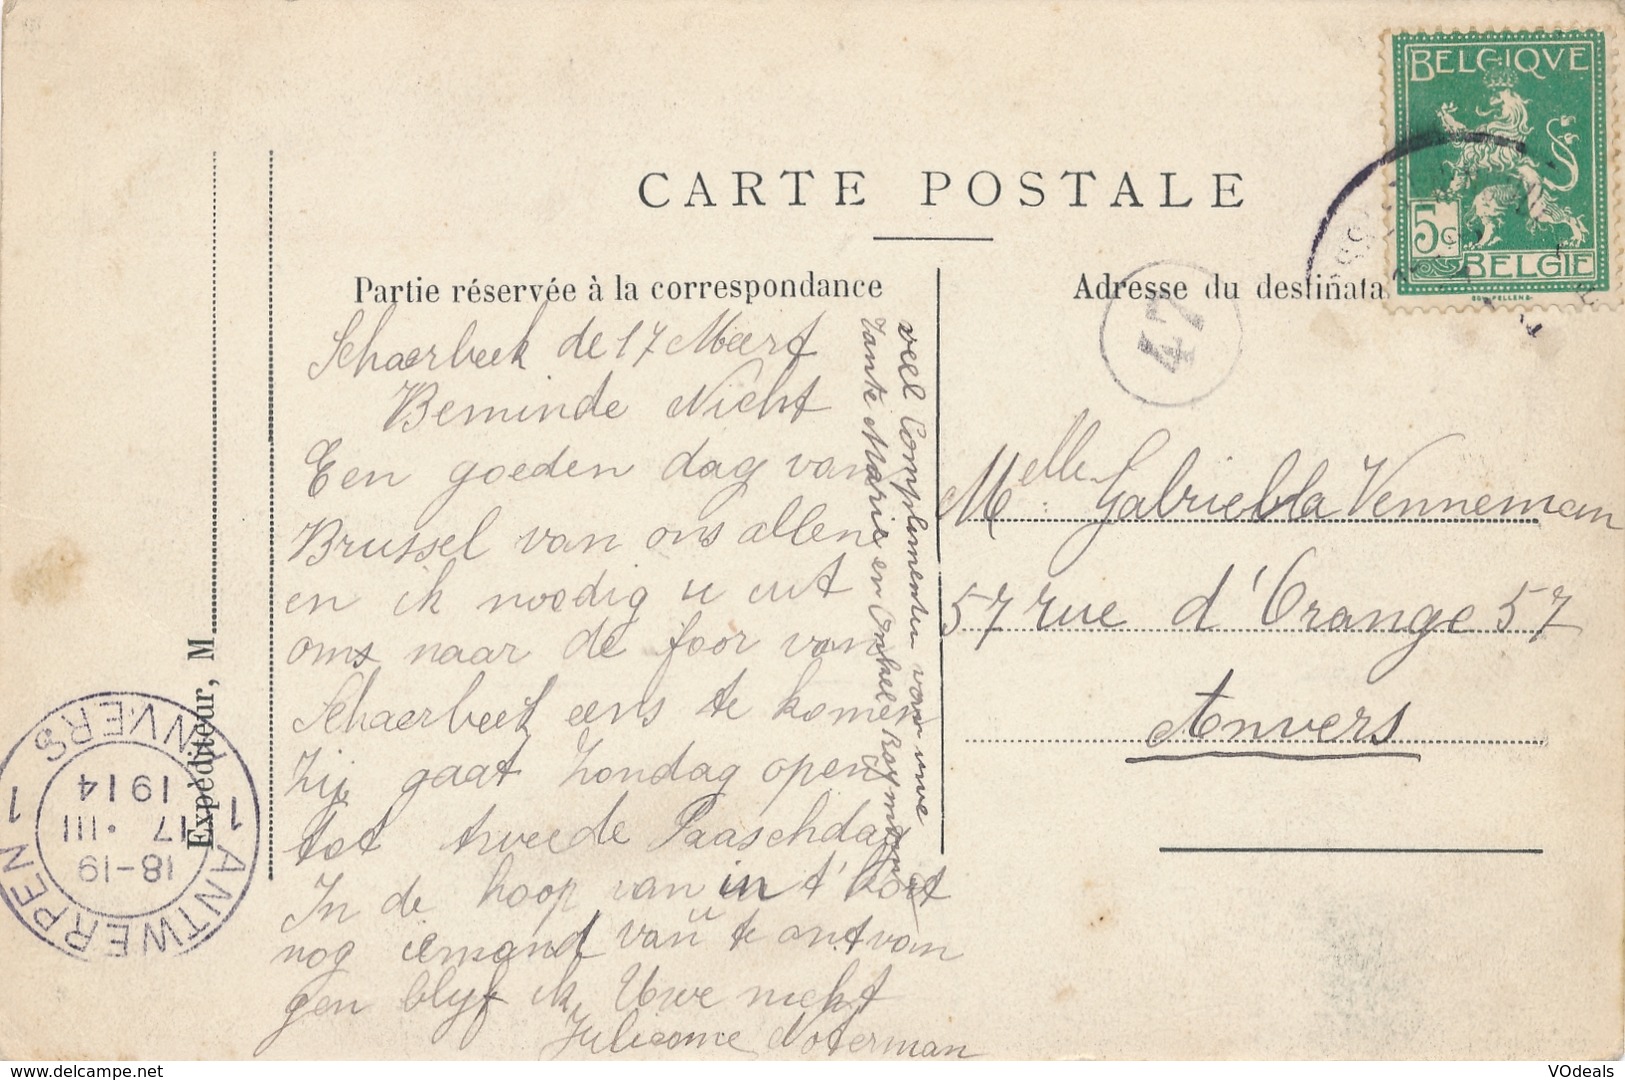 CARTE POSTALE
Partie réservée à la correspondance
Adresse du destinata
BELGIQVE
5c
BELGIE
47
Schaerbeek de 17 Meert
Beminde Nicht
Een goeden dag van
Brussel van ons allen
en ik noodig u uit
oms naar de foor van
Schaerbeek eens te komen
Zij gaat Zondag open
tot tweede Paaschdag
In de hoop van in t' kort
nog iemand van u te ontvan
gen blijf ik Uwe nicht
Noterman
veel Complimenten van uwe
Tante Marie en Onkel Raymond
Melle Gabriella Venneman
57 rue d'Orange 57
Anvers
Expéditeur, M
1 ANTWERPEN 1
ANVERS
18-19
17 · III
1914
www.delcampe.net
VOdeals